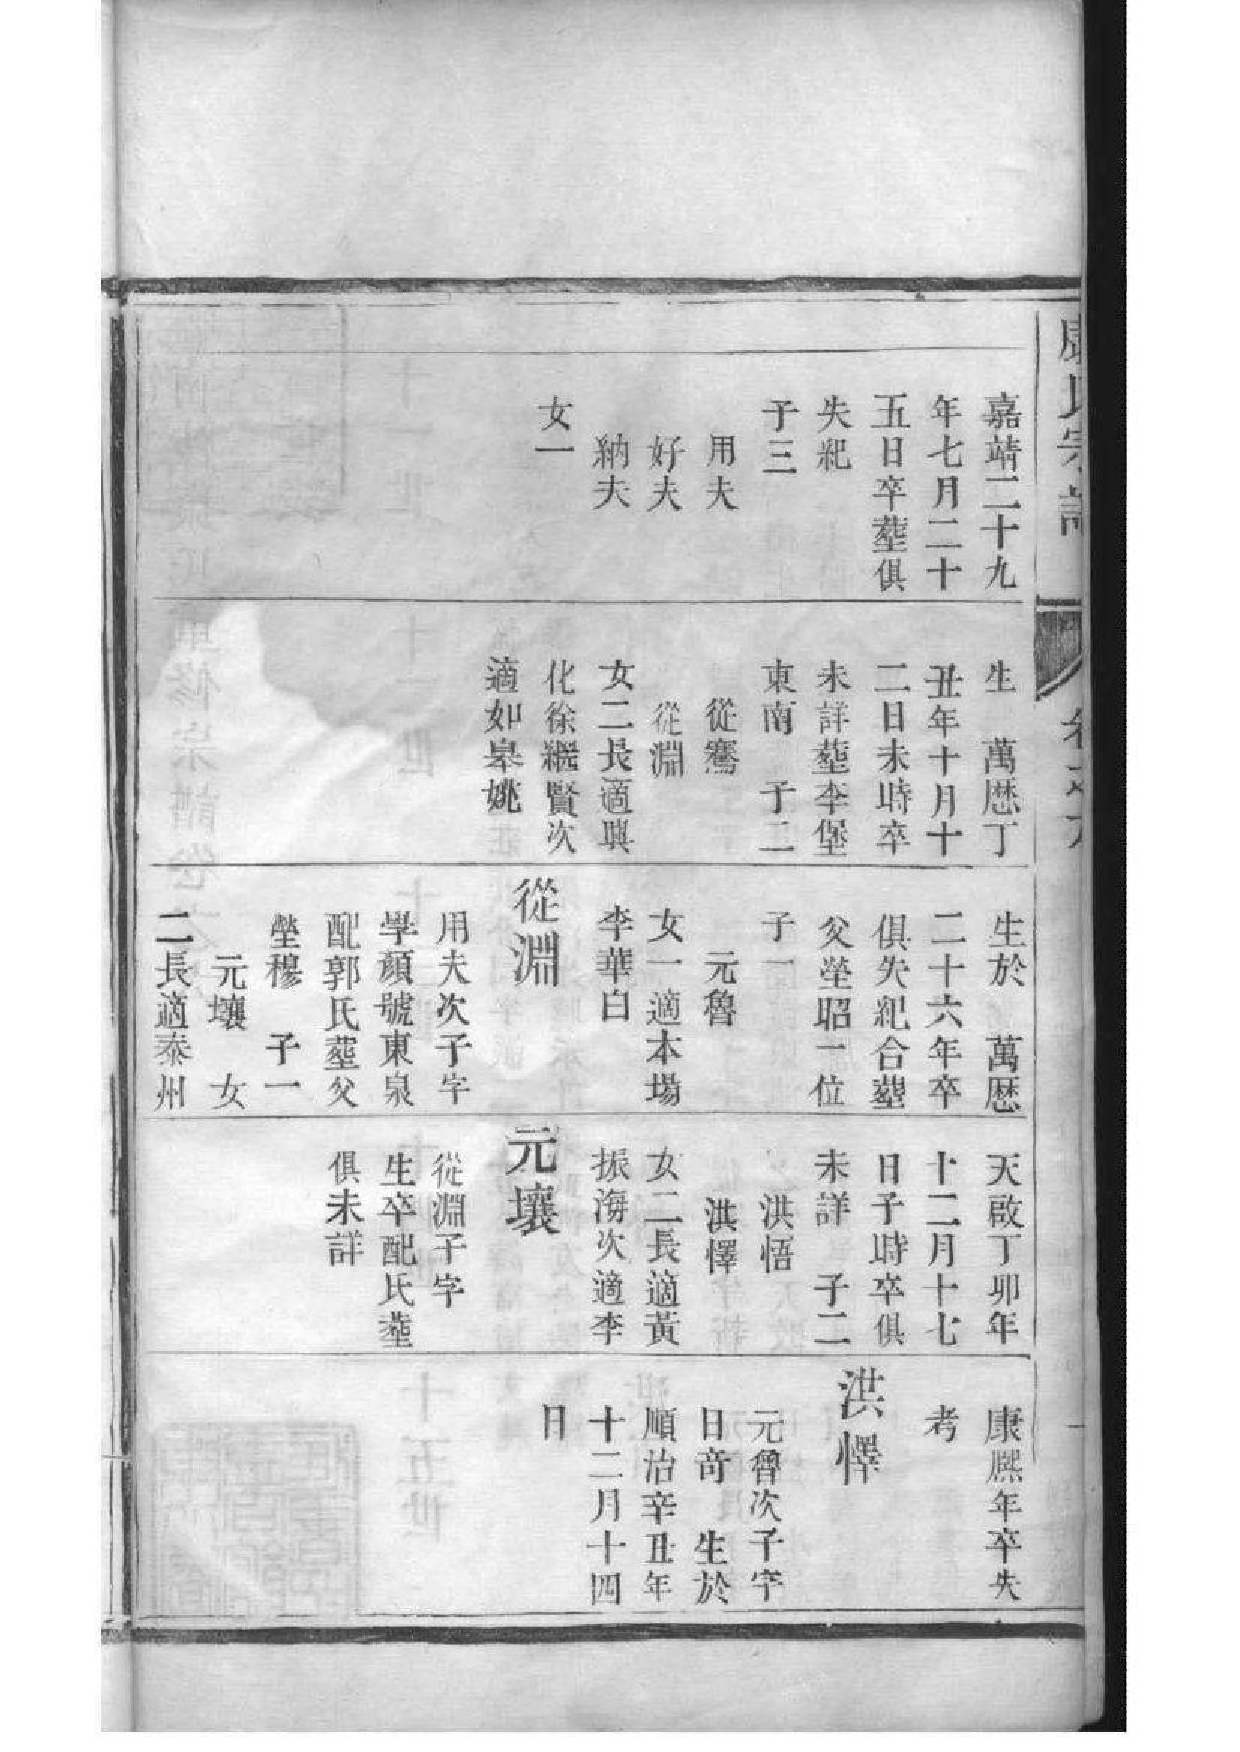 康氏宗譜
卷之六
嘉靖二十九
年七月二十
五日卒塟俱
失紀
子三
用夫
好夫
納夫
女一
生　萬歷丁
丑年十月十
二日未時卒
未詳塟李堡
東南　子二
從騫
從淵
女二長適興
化徐繼賢次
適如皋姚
生於　萬歷
二十六年卒
俱失紀合塟
父塋昭一位
子一
元魯
女一適本場
李華白
從淵
用夫次子字
學顏號東泉
配郭氏塟父
塋穆　子一
元壤　女
二長適泰州
天啟丁卯年
十二月十七
日子時卒俱
未詳　子二
洪悟
洪懌
女二長適黃
振海次適李
元壤
從淵子字
生卒配氏塟
俱未詳
康熙年卒失
考
洪懌
元魯次子字
日奇　生於
順治辛丑年
十二月十四
日